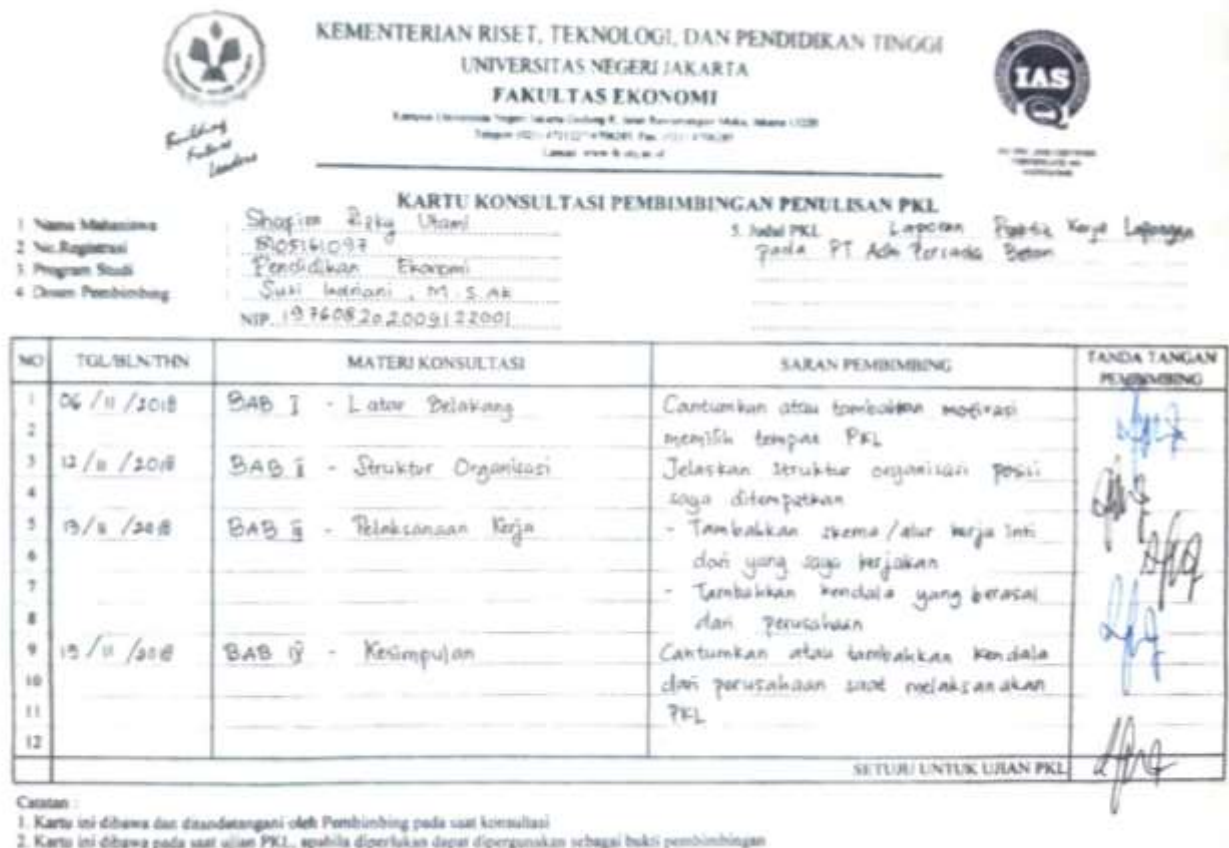 KEMENTERIAN RISET, TEKNOLOGI, DAN PENDIDIKAN TINGGI
UNIVERSITAS NEGERI JAKARTA
FAKULTAS EKONOMI
Building
Future
Leaders
IAS
KARTU KONSULTASI PEMBIMBINGAN PENULISAN PKL
1 Nama Mahasiswa : Rizky Utami
2 No.Registrasi : 8105161097
3 Program Studi : Pendidikan Ekonomi
4 Dosen Pembimbing : Susi Indriani, M.S.Ak
NIP. 197608202009122001
5. Judul PKL Laporan Praktik Kerja Lapangan
pada PT Adhi Persada Beton
NO TGL/BLN/THN MATERI KONSULTASI SARAN PEMBIMBING TANDA TANGAN PEMBIMBING
1 06/11/2018 BAB I - Latar Belakang Cantumkan atau tambahkan motivasi
2 memilih tempat PKL
3 12/11/2018 BAB II - Struktur Organisasi Jelaskan struktur organisasi posisi
4 saya ditempatkan
5 BAB III - Pelaksanaan Kerja - Tambahkan skema/alur kerja inti
6 dari yang saya kerjakan
7 - Tambahkan kendala yang berasal
8 dari perusahaan
9 BAB IV - Kesimpulan Cantumkan atau tambahkan kendala
10 dari perusahaan saat melaksanakan
11 PKL
12
SETUJU UNTUK UJIAN PKL
Catatan :
1. Kartu ini dibawa dan ditandatangani oleh Pembimbing pada saat konsultasi
2. Kartu ini dibawa pada saat ujian PKL, apabila diperlukan dapat dipergunakan sebagai bukti pembimbingan